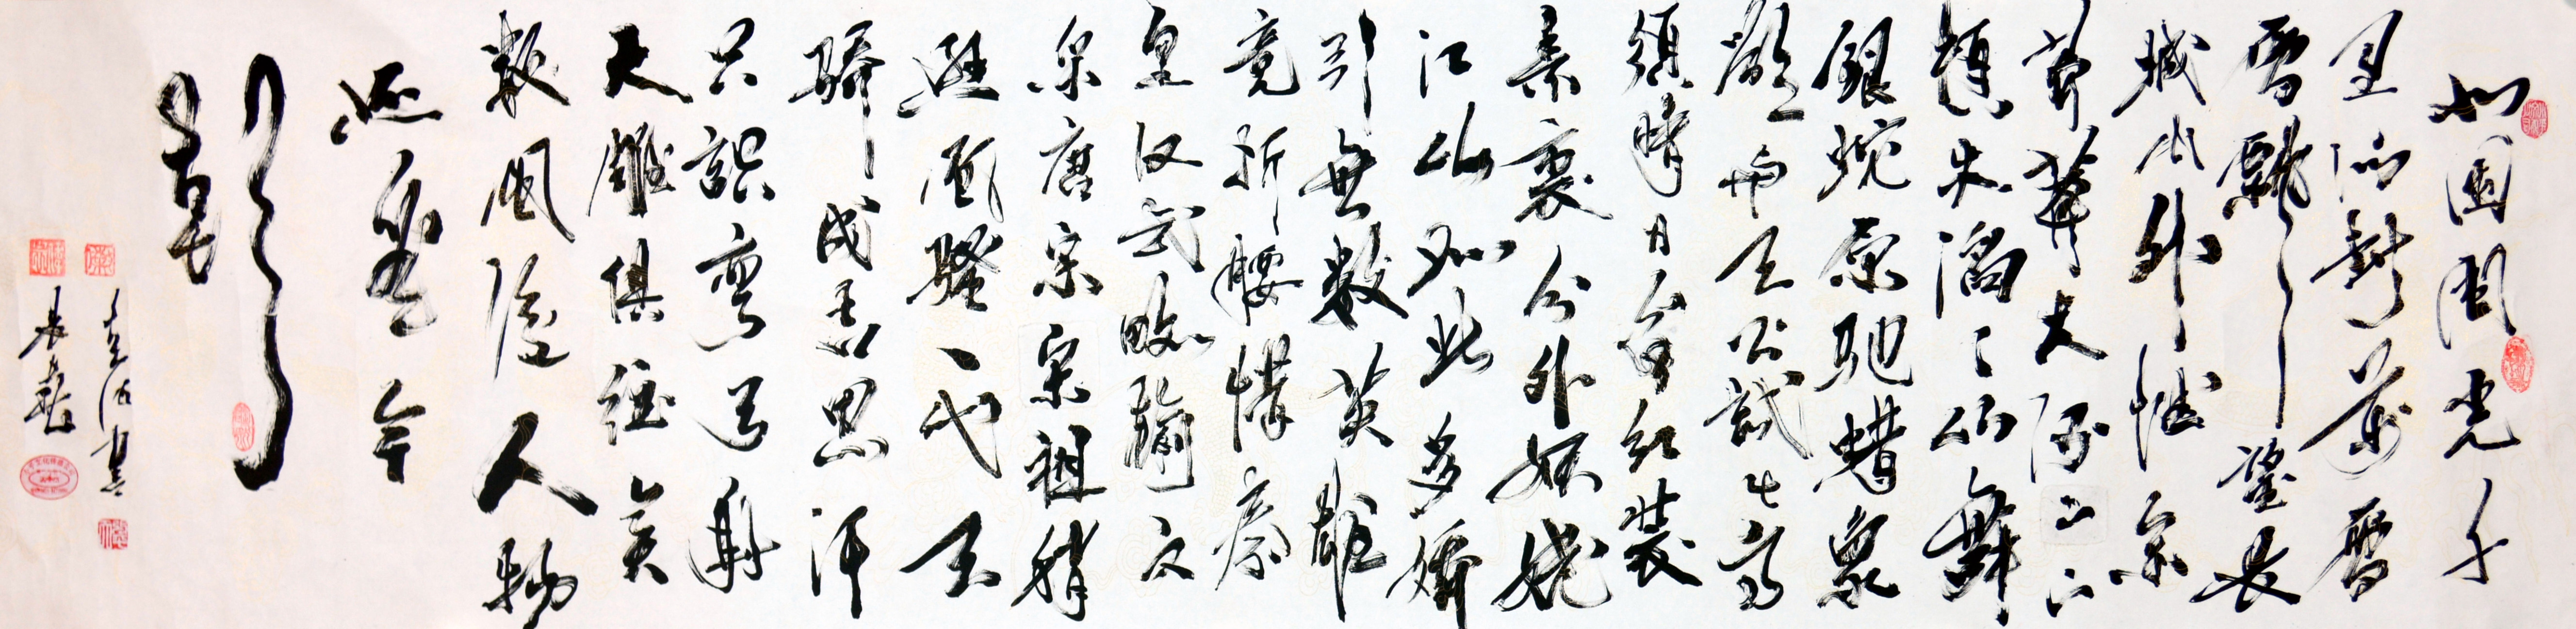 北國風光千
里冰封萬里
雪飄望長
城内外惟余
莽莽大河上下
頓失滔滔山舞
銀蛇原馳蜡象
欲与天公試比高
須晴日看红装
素裹分外妖娆
江山如此多嬌
引無数英雄
竞折腰惜秦
皇汉武略输文
采唐宗宋祖稍
逊風騷一代天
驕成吉思汗
只識弯弓射
大雕俱往矣
数風流人物
还看今
朝